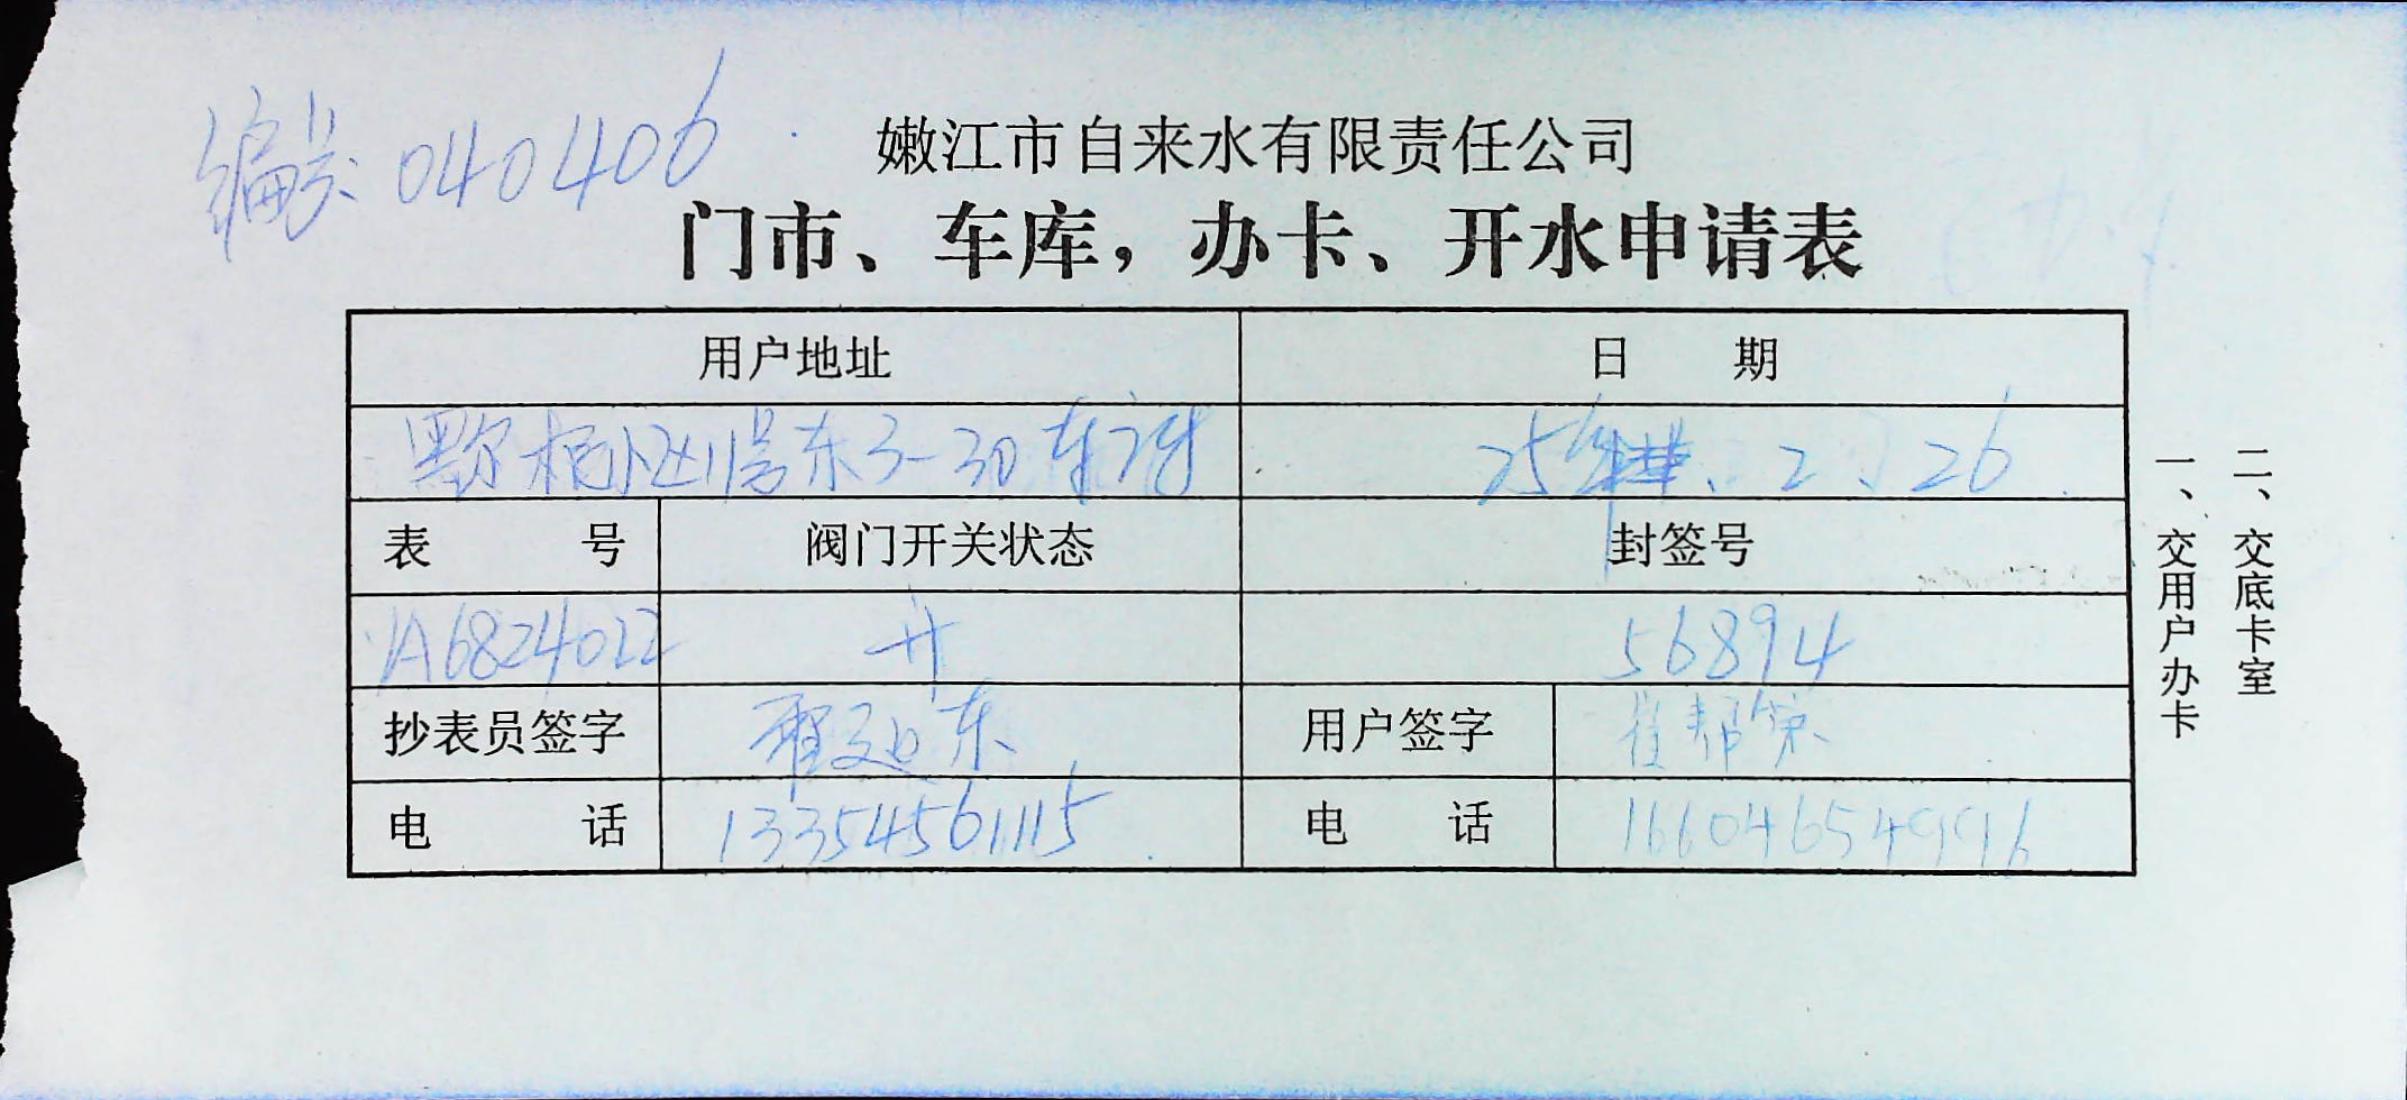 编号 040406
嫩江市自来水有限责任公司
门市、车库，办卡、开水申请表
用户地址 日 期
墨尔根小区11号东3-30车库 25年 、2、26
表 号 阀门开关状态 封签号
1A6824022 开 56894
抄表员签字 东 用户签字 崔帮
电 话 13354561115 电 话 16604654996
一、交用户办卡
二、交底卡室